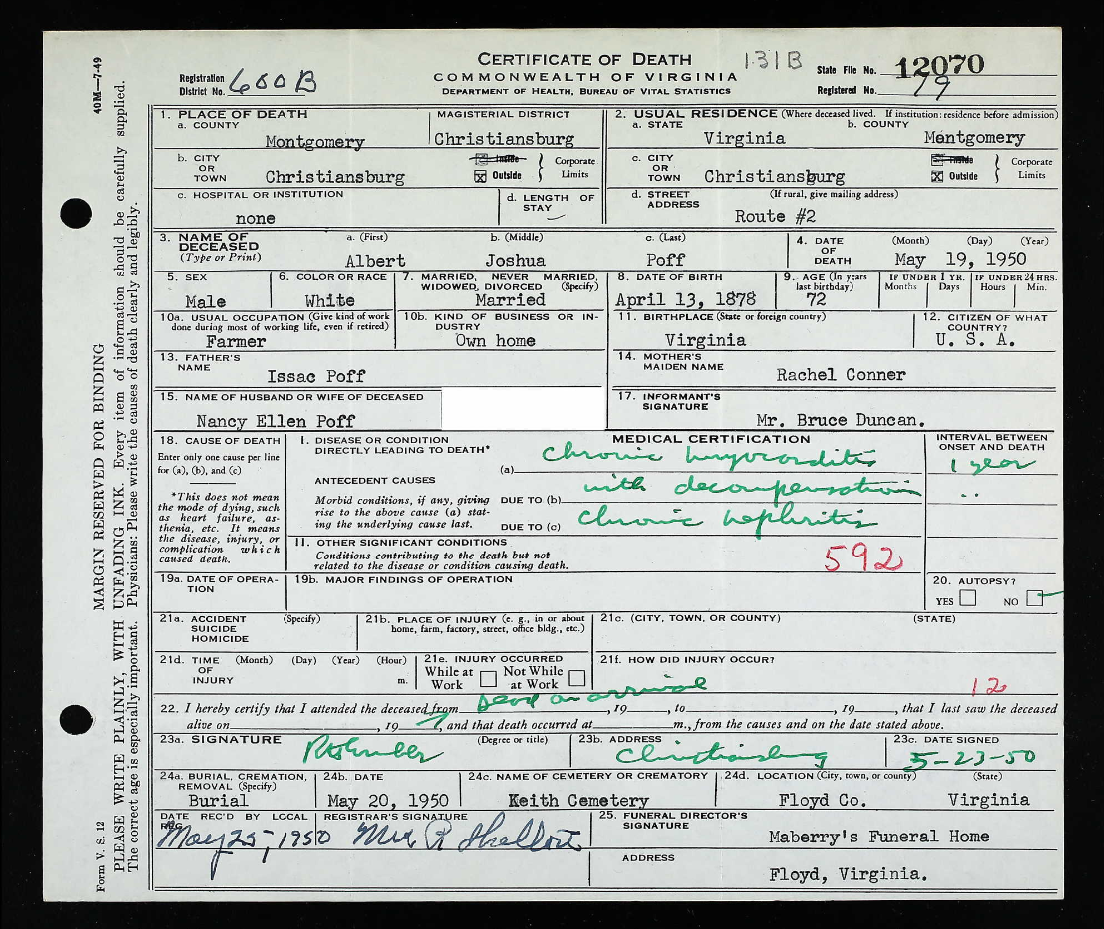 CERTIFICATE OF DEATH
COMMONWEALTH OF VIRGINIA
DEPARTMENT OF HEALTH, BUREAU OF VITAL STATISTICS
131B
Registration District No. 600B
State File No. 12070
Registered No. 79
40M—7-49
MARGIN RESERVED FOR BINDING
PLEASE WRITE PLAINLY, WITH UNFADING INK. Every item of information should be carefully supplied.
The correct age is especially important. Physicians: Please write the causes of death clearly and legibly.
Form V. S. 12
1. PLACE OF DEATH
a. COUNTY
Montgomery
MAGISTERIAL DISTRICT
Christiansburg
b. CITY OR TOWN
Christiansburg
Inside
Outside
Corporate Limits
c. HOSPITAL OR INSTITUTION
none
d. LENGTH OF STAY
2. USUAL RESIDENCE (Where deceased lived. If institution: residence before admission)
a. STATE
Virginia
b. COUNTY
Montgomery
c. CITY OR TOWN
Christiansburg
Inside
Outside
Corporate Limits
d. STREET ADDRESS
(If rural, give mailing address)
Route #2
3. NAME OF DECEASED
(Type or Print)
a. (First)
Albert
b. (Middle)
Joshua
c. (Last)
Poff
4. DATE OF DEATH
(Month) (Day) (Year)
May 19, 1950
5. SEX
Male
6. COLOR OR RACE
White
7. MARRIED, NEVER MARRIED, WIDOWED, DIVORCED (Specify)
Married
8. DATE OF BIRTH
April 13, 1878
9. AGE (In years last birthday)
72
IF UNDER 1 YR.
Months Days
IF UNDER 24 HRS.
Hours Min.
10a. USUAL OCCUPATION (Give kind of work done during most of working life, even if retired)
Farmer
10b. KIND OF BUSINESS OR INDUSTRY
Own home
11. BIRTHPLACE (State or foreign country)
Virginia
12. CITIZEN OF WHAT COUNTRY?
U. S. A.
13. FATHER'S NAME
Issac Poff
14. MOTHER'S MAIDEN NAME
Rachel Conner
15. NAME OF HUSBAND OR WIFE OF DECEASED
Nancy Ellen Poff
17. INFORMANT'S SIGNATURE
Mr. Bruce Duncan.
18. CAUSE OF DEATH
Enter only one cause per line for (a), (b), and (c)
*This does not mean the mode of dying, such as heart failure, asthenia, etc. It means the disease, injury, or complication which caused death.
MEDICAL CERTIFICATION
I. DISEASE OR CONDITION DIRECTLY LEADING TO DEATH*
(a) Chronic myocarditis
ANTECEDENT CAUSES
Morbid conditions, if any, giving rise to the above cause (a) stating the underlying cause last.
DUE TO (b) with decompensation
DUE TO (c) Chronic nephritis
INTERVAL BETWEEN ONSET AND DEATH
1 year
II. OTHER SIGNIFICANT CONDITIONS
Conditions contributing to the death but not related to the disease or condition causing death.
592
19a. DATE OF OPERATION
19b. MAJOR FINDINGS OF OPERATION
20. AUTOPSY?
YES NO
21a. ACCIDENT SUICIDE HOMICIDE (Specify)
21b. PLACE OF INJURY (e. g., in or about home, farm, factory, street, office bldg., etc.)
21c. (CITY, TOWN, OR COUNTY) (STATE)
21d. TIME OF INJURY (Month) (Day) (Year) (Hour) m.
21e. INJURY OCCURRED
While at Work Not While at Work
21f. HOW DID INJURY OCCUR?
12
Dead on arrival
22. I hereby certify that I attended the deceased from , 19 , to , 19 , that I last saw the deceased
alive on , 19 , and that death occurred at m., from the causes and on the date stated above.
23a. SIGNATURE
(Degree or title)
23b. ADDRESS
Christiansburg
23c. DATE SIGNED
5-23-50
24a. BURIAL, CREMATION, REMOVAL (Specify)
Burial
24b. DATE
May 20, 1950
24c. NAME OF CEMETERY OR CREMATORY
Keith Cemetery
24d. LOCATION (City, town, or county) (State)
Floyd Co. Virginia
DATE REC'D BY LOCAL REG.
May 25, 1950
REGISTRAR'S SIGNATURE
25. FUNERAL DIRECTOR'S SIGNATURE
Maberry's Funeral Home
ADDRESS
Floyd, Virginia.